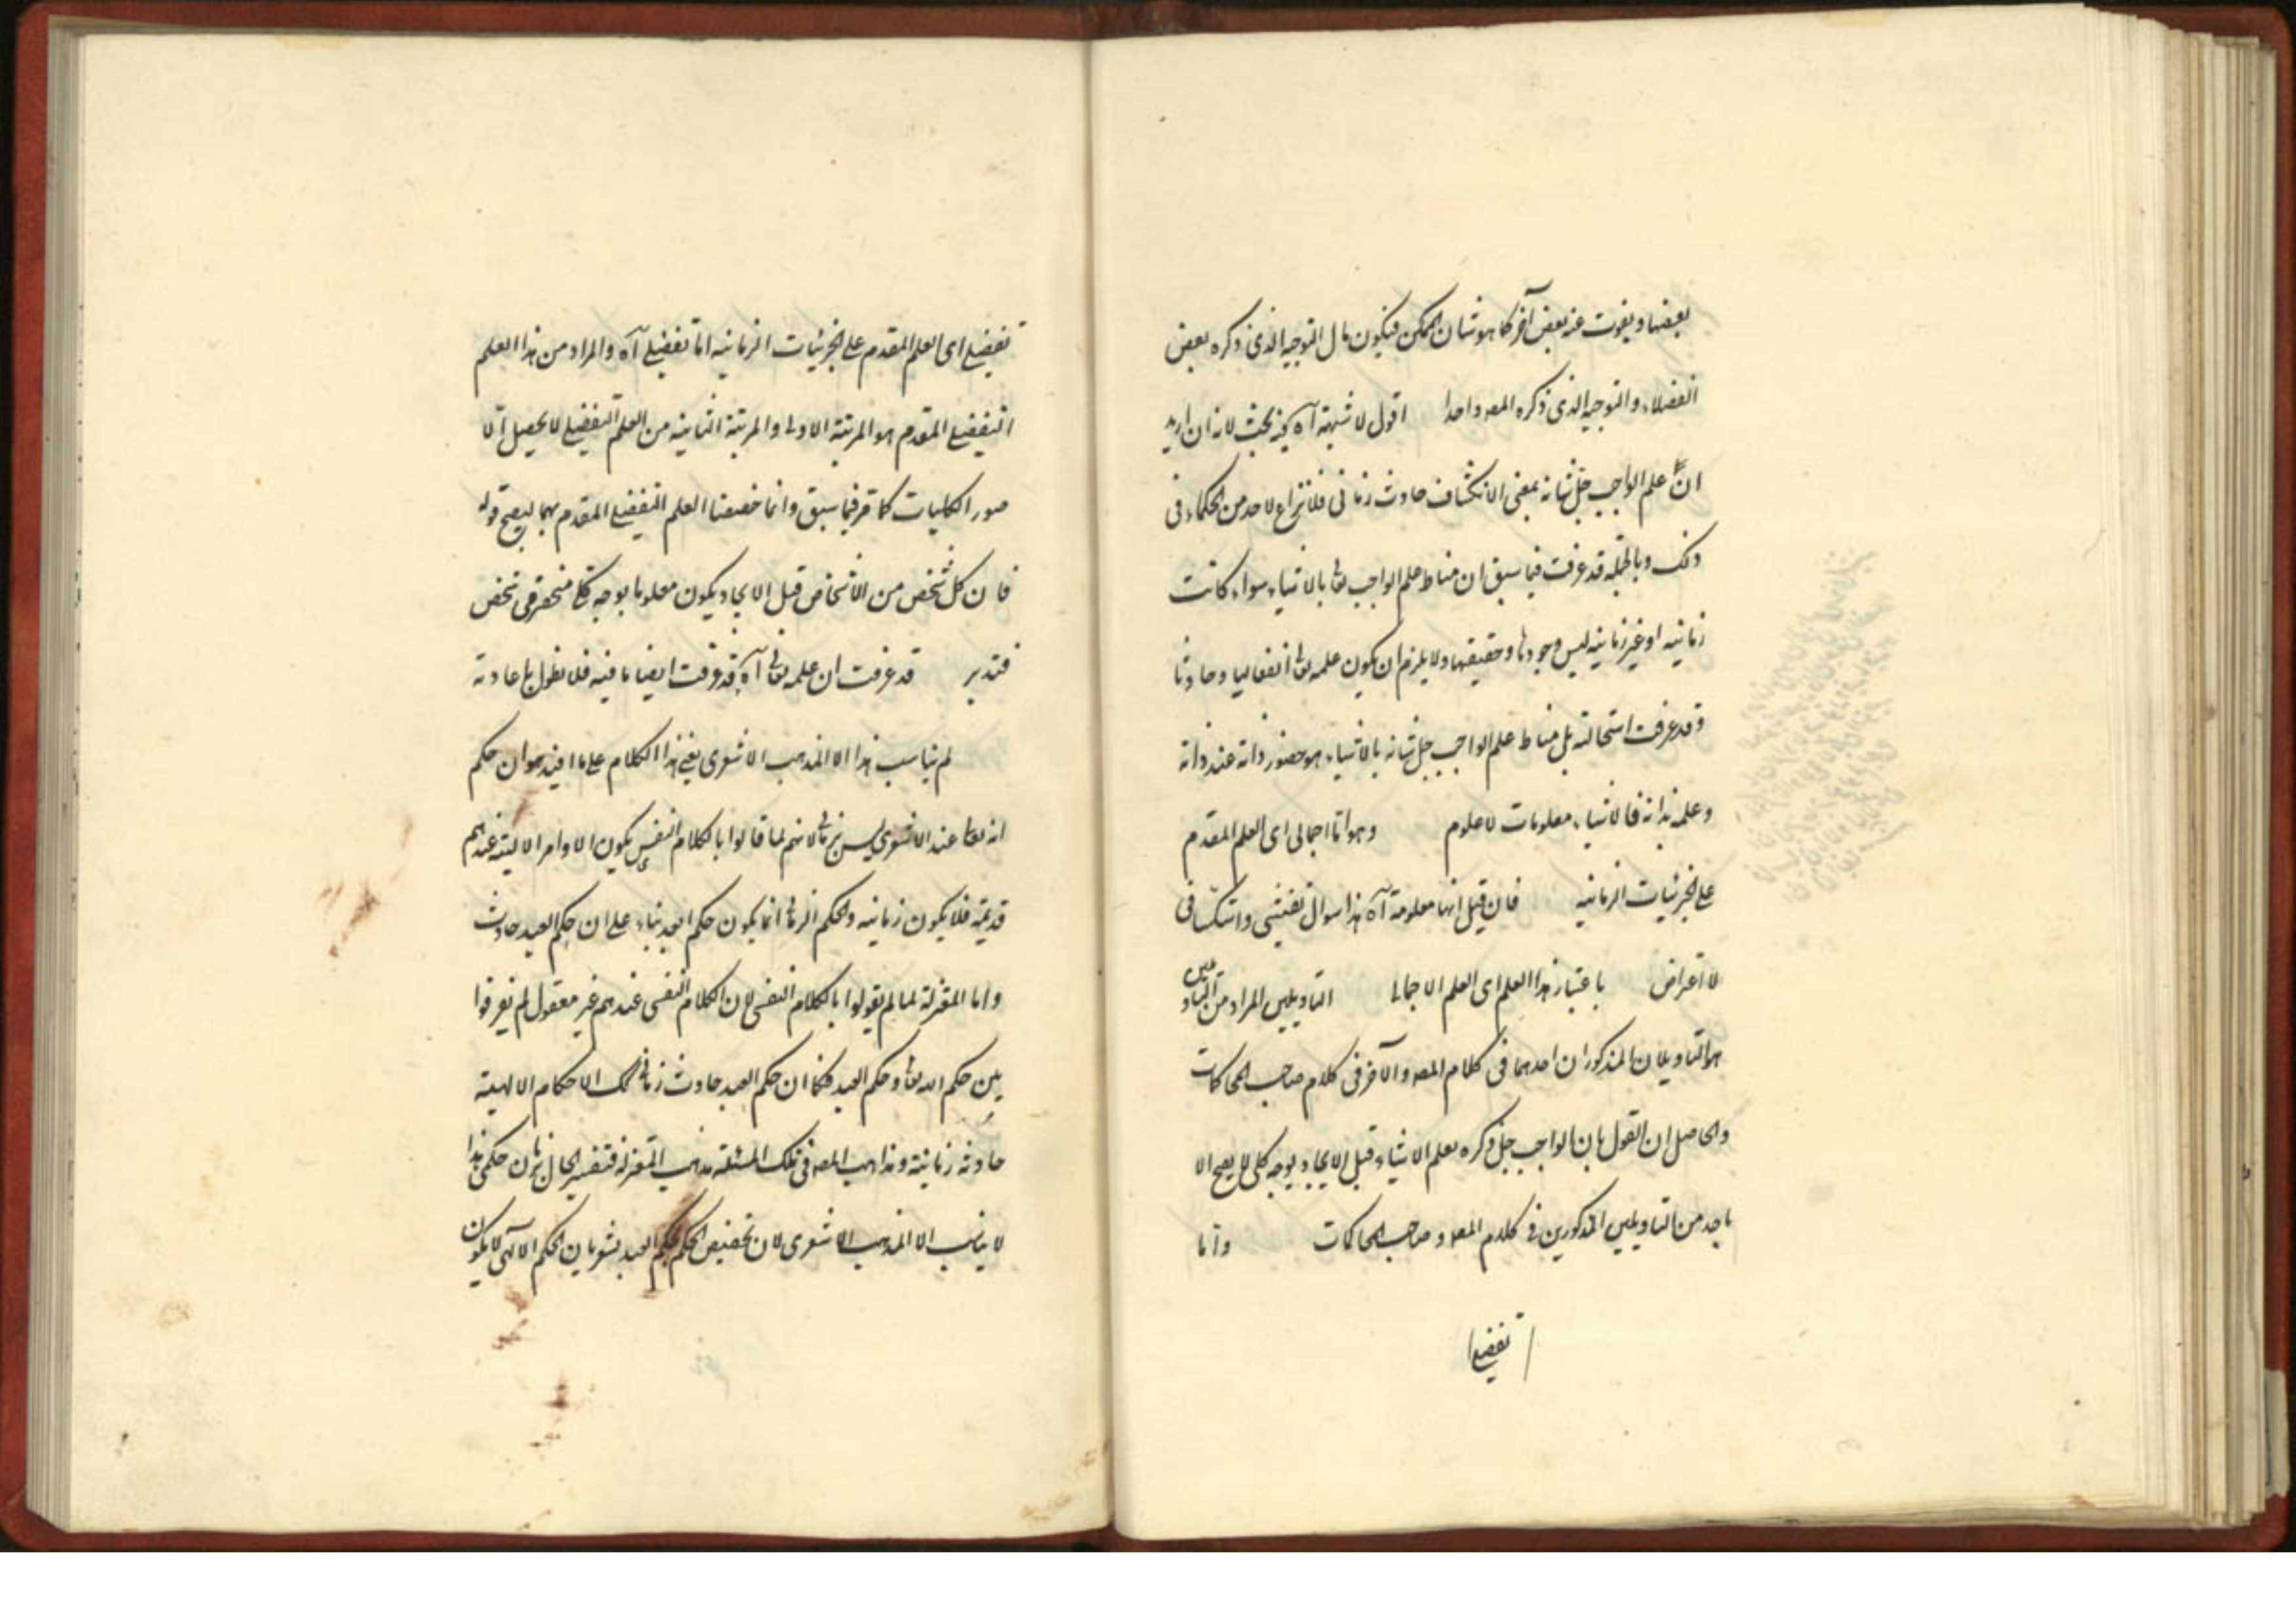 بعضها ويفوت عنه بعض آخر كما هو شان الممكن فيكون مآل التوجيه الذي ذكره بعض
الفضلاء والتوجيه الذي ذكره المصـ واحدا اقول لا شبهة آه فيه بحث لانه ان اريد
ان علم الواجب جل شانه بمعنى الانكشاف حادث زماني فلا نزاع لاحد من الحكماء في
ذلك وبالجملة قد عرفت فيما سبق ان مناط علم الواجب تعا بالاشياء سواء كانت
زمانية او غير زمانية ليس وجودها وحقيقتها ولا يلزم ان يكون علمه تعا انفعاليا وحادثا
وقد عرفت استحالته بل مناط علم الواجب جل شانه بالاشياء هو حضور ذاته عند ذاته
وعلمه بذاته فالاشياء معلومات لا علوم وهو اما اجمالي اي العلم المقدم
على الجزئيات الزمانية فان قيل انها معلومة آه هذا سوال تفتيشي واستكشافي
لا اعتراض باعتبار هذا العلم اي العلم الاجمالي التاويلين المراد من التاويلين
هو التاويلان المذكوران احدهما في كلام المصـ والآخر في كلام صاحب المحاكمات
والحاصل ان القول بان الواجب جل ذكره يعلم الاشياء قبل الايجاد بوجه كلي لا يصح الا
باحد من التاويلين المذكورين في كلام المصـ وصاحب المحاكمات واما
تفصيلي
تفصيلي اي العلم المقدم على الجزئيات الزمانية اما تفصيلي آه والمراد من هذا العلم
التفصيلي المقدم هو المرتبة الاولى والمرتبة الثانية من العلم التفصيلي لا يحصل الا
صور الكليات كما مر فيما سبق وانما خصصنا العلم التفصيلي المقدم بهما ليصح قوله
فان كل شخص من الاشخاص قبل الايجاد يكون معلوما بوجه كلي منحصر في شخص
فتدبر قد عرفت ان علمه تعالى آه قد عرفت ايضا ما فيه فلا نطول باعادته
لم يناسب هذا الا المذهب الاشعري يعني هذا الكلام على ما افيد هو ان حكم
انه تعا عند الاشعري ليس بزماني لانهم لما قالوا بالكلام النفسي يكون الاوامر الالهية عندهم
قديمة فلا يكون زمانية والحكم الزماني انما يكون حكم العبد بناء على ان حكم العبد حادث
واما المعتزلة لما لم يقولوا بالكلام النفسي لان الكلام النفسي عندهم غير معقول لم يفرقوا
بين حكم الله تعا وحكم العبد فكما ان حكم العبد حادث زماني كك الاحكام الالهية
حادثة زمانية ومذهب المصـ في تلك المسئلة مذهب المعتزلة فتفسير الحال بزمان حكمي هذا
لا يناسب الا المذهب الاشعري لان تخصيص الحكم بحكم العبد يشعر بان الحكم الالهي لا يكون